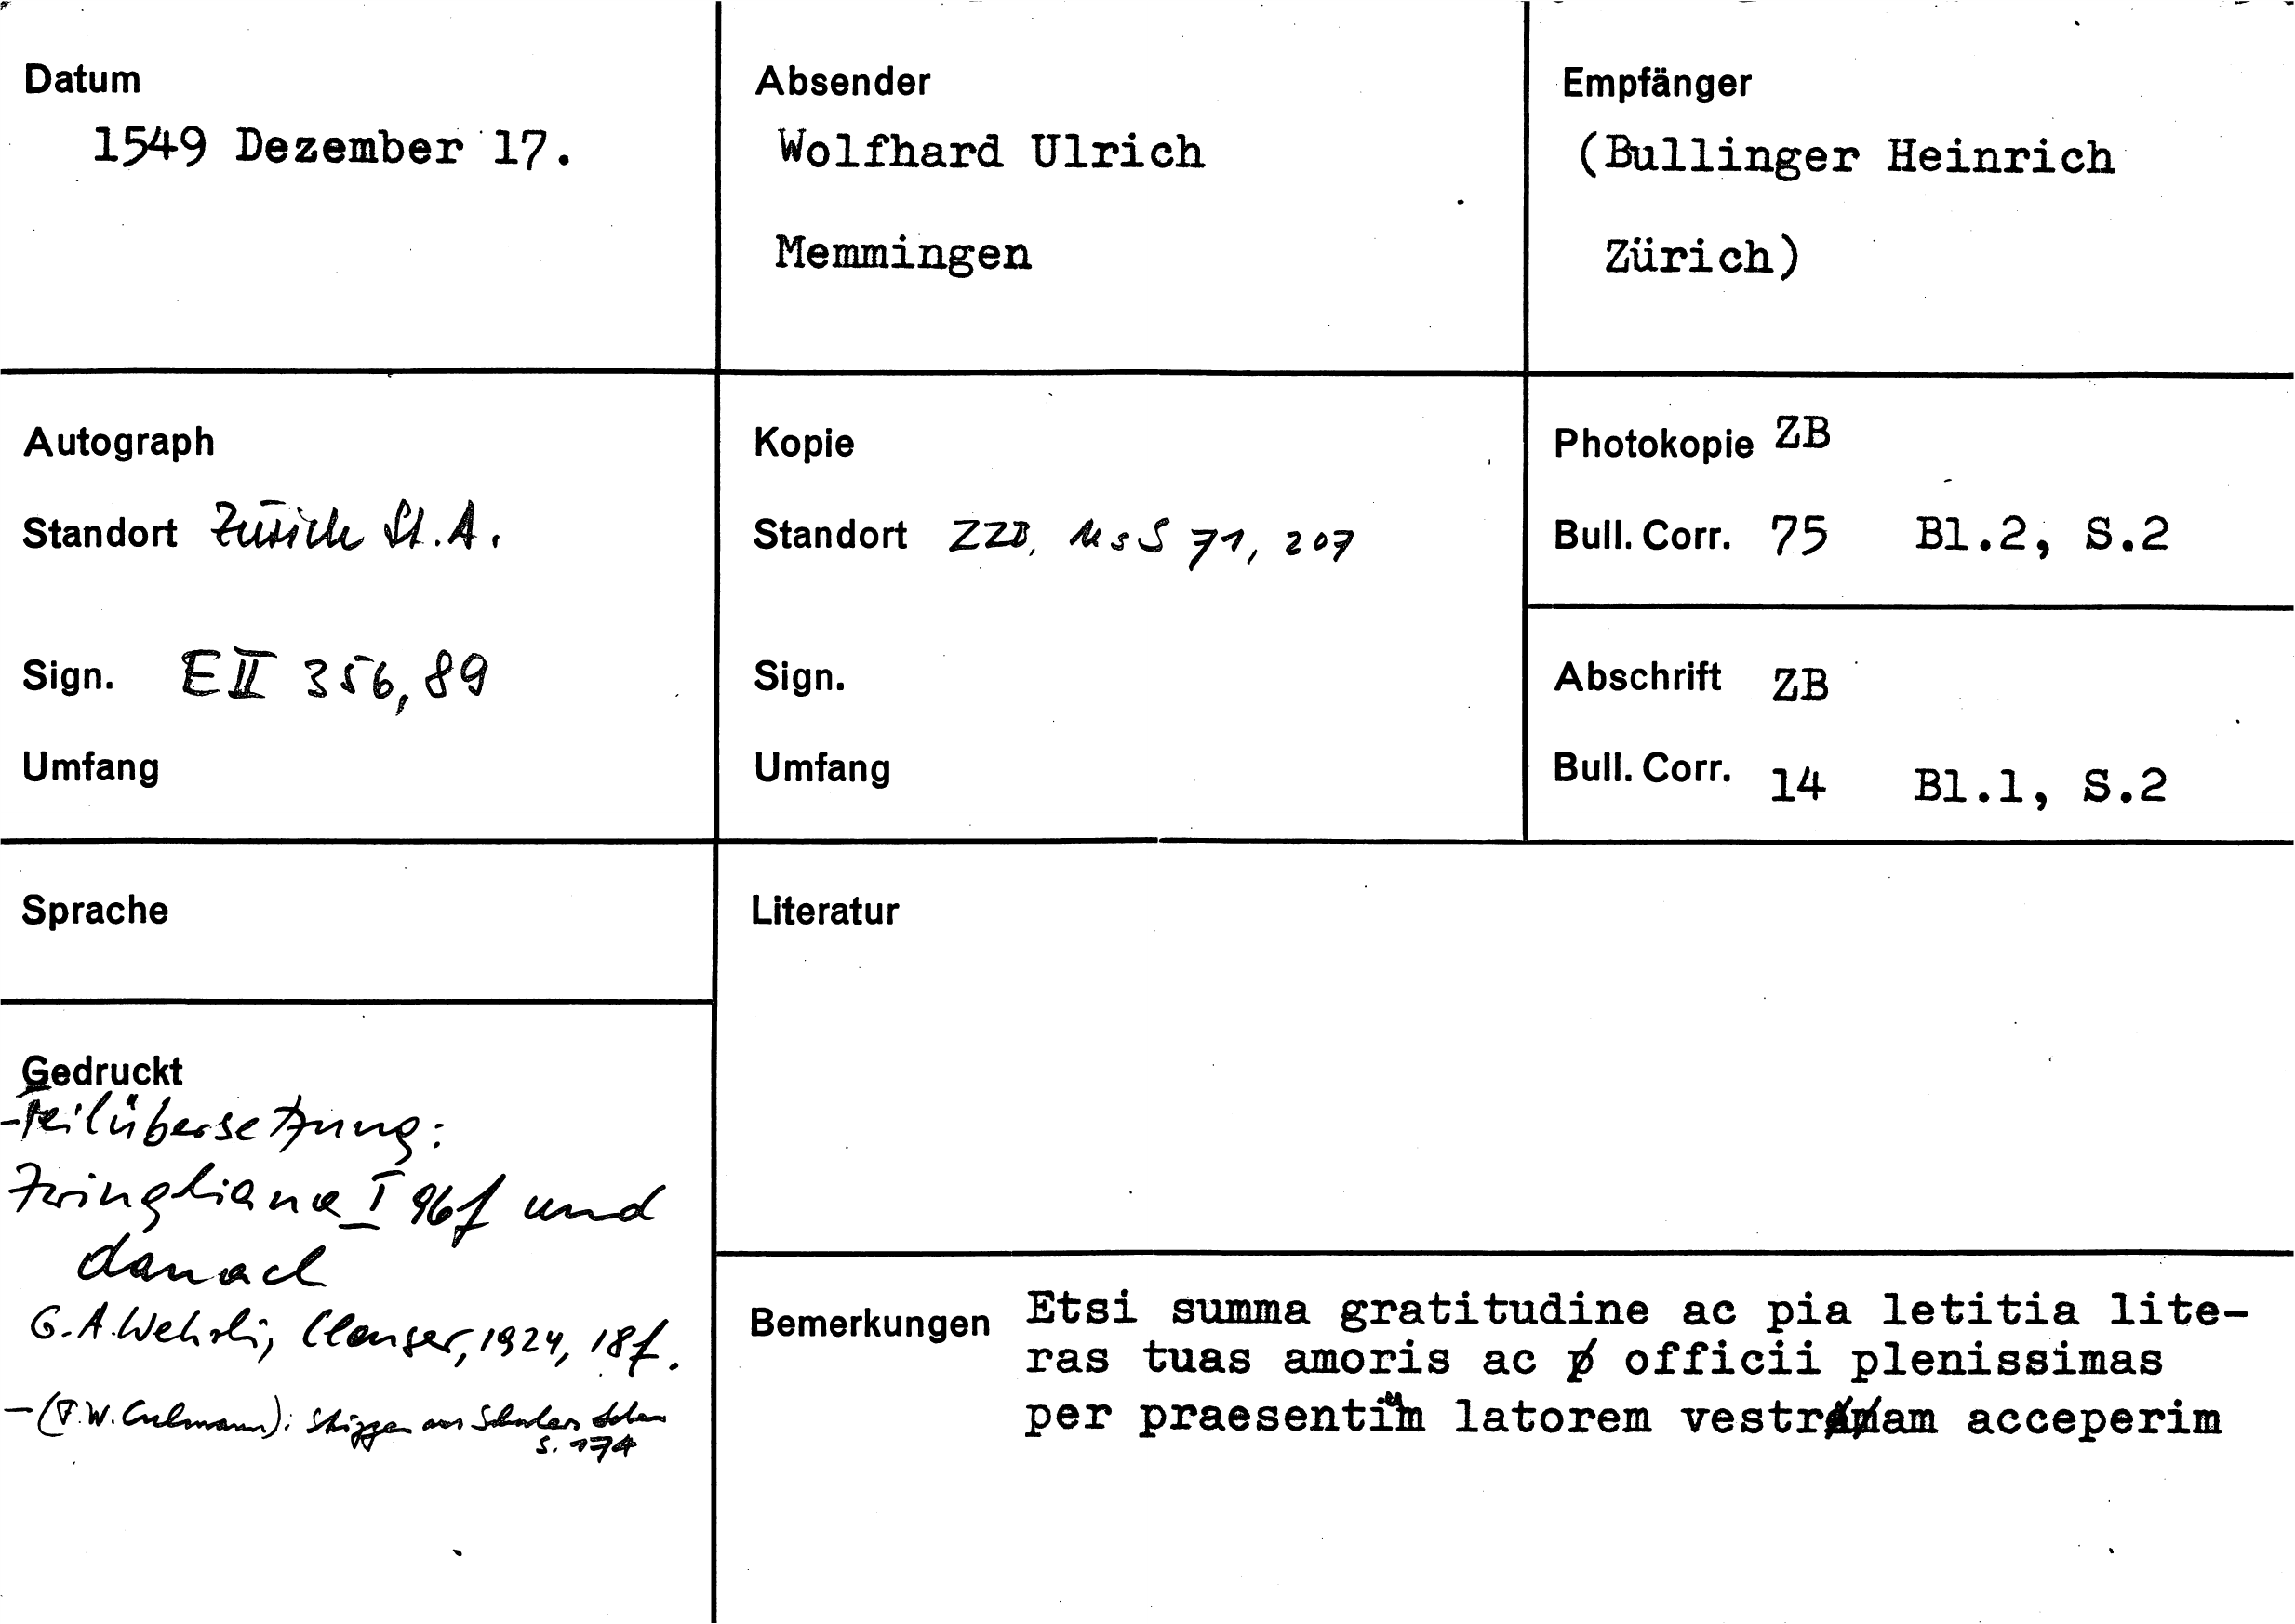 Datum
1549 Dezember 17.
Absender
Wolfhard Ulrich
Memmingen
Empfänger
(Bullinger Heinrich
Zürich)
Autograph
Standort Zürich St.A.
Sign. E II 356, 89
Umfang
Kopie
Standort ZZB, MsS 71, 207
Sign.
Umfang
Photokopie ZB
Bull. Corr. 75 Bl.2, S.2
Abschrift ZB
Bull. Corr. 14 Bl.1, S.2
Sprache
Literatur
Gedruckt
-Teilübersetzung:
Zwingliana I 96f und
danach
G.A. Wehrli, Clauser, 1924, 18f.
- (F.W. Culmann): Skizzen aus Schulers Leben
S. 174
Bemerkungen Etsi summa gratitudine ac pia letitia lite-
ras tuas amoris ac officii plenissimas
per praesentium latorem vestram acceperim